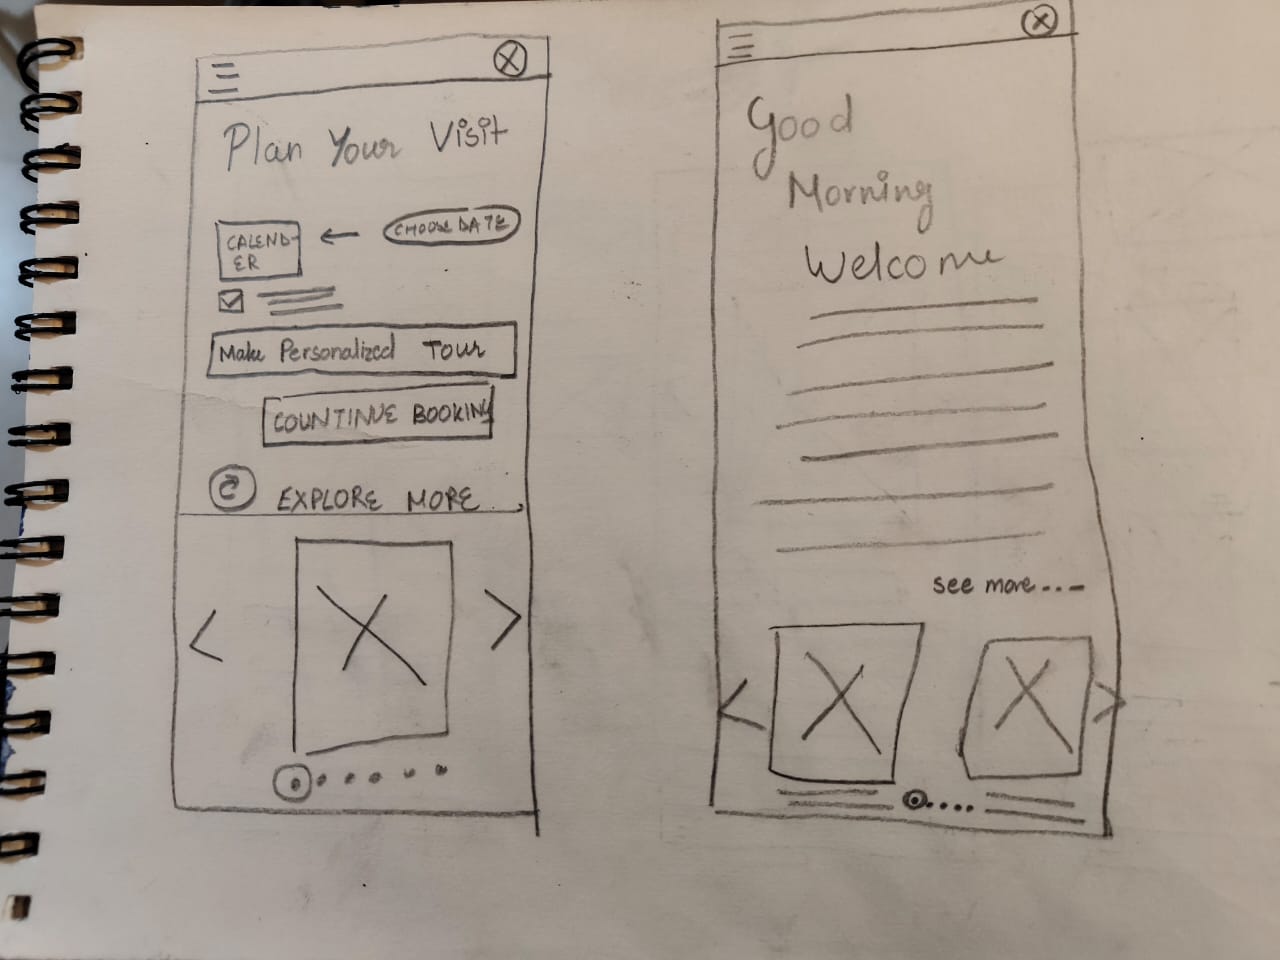 Plan Your Visit
CALEND-
ER
CHOOSE DATE
Make Personalized Tour
COUNTINUE BOOKING
EXPLORE MORE
Good
Morning
Welcome
see more....